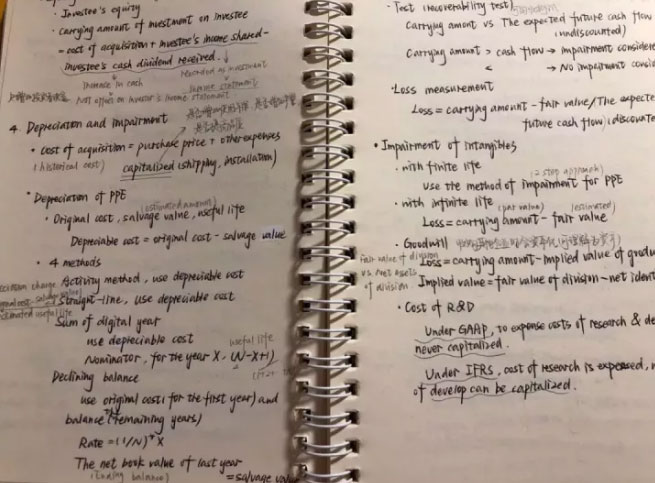 · Investee's equity
· carrying amount of investment on investee
= cost of acquisition + investee's income shared -
investee's cash dividend received.
increase in cash
recorded as investment
income statement
Not affect on investor's income statement
4 Depreciation and impairment
· Cost of acquisition = purchase price + other expenses
(historical cost)
capitalized (shipping, installation)
· Depreciation of PPE
(estimated amount)
· Original cost, salvage value, useful life
Depreciable cost = original cost - salvage value
· 4 methods
Activity method, use depreciable cost
Straight-line, use depreciable cost
estimated useful life
Sum of digital year
use depreciable cost
useful life
Nominator, for the year X, (N-X+1)
Declining balance
use original cost (for the first year) and
balance (remaining years)
Rate = (1/N) * X
The net book value of last year
(Ending balance)
= salvage value
· Test recoverability test
Carrying amount vs The expected future cash flow
(undiscounted)
Carrying amount > cash flow → impairment considere
< → No impairment consid
· Loss measurement
Loss = carrying amount - fair value / The expecte
future cash flow (discounte
· Impairment of intangibles
· with finite life
(2 step approach)
use the method of impairment for PPE
· with infinite life
(par value)
(estimated)
Loss = carrying amount - fair value
· Goodwill
fair value of division
vs. net assets
of division
Loss = carrying amount - implied value of goodw
Implied value = fair value of division - net ident
· Cost of R&D
Under GAAP, to expense costs of research & de
never capitalized.
Under IFRS, cost of research is expensed,
of develop can be capitalized.